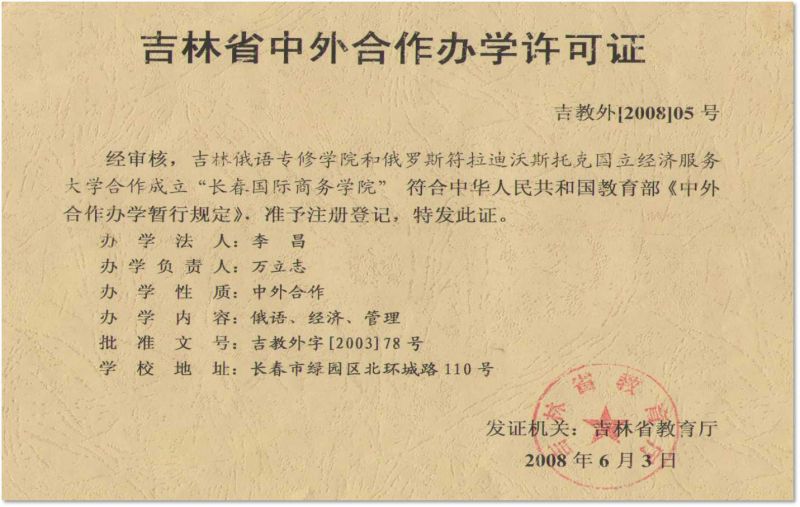 吉林省中外合作办学许可证
吉教外[2008]05 号
经审核，吉林俄语专修学院和俄罗斯符拉迪沃斯托克国立经济服务
大学合作成立“长春国际商务学院” 符合中华人民共和国教育部《中外
合作办学暂行规定》，准予注册登记，特发此证。
办学法人：李 昌
办学负责人：万立志
办学性质：中外合作
办学内容：俄语、经济、管理
批准文号：吉教外字[2003]78号
学校地址：长春市绿园区北环城路110号
吉林省教育厅
发证机关：吉林省教育厅
2008 年 6 月 3 日